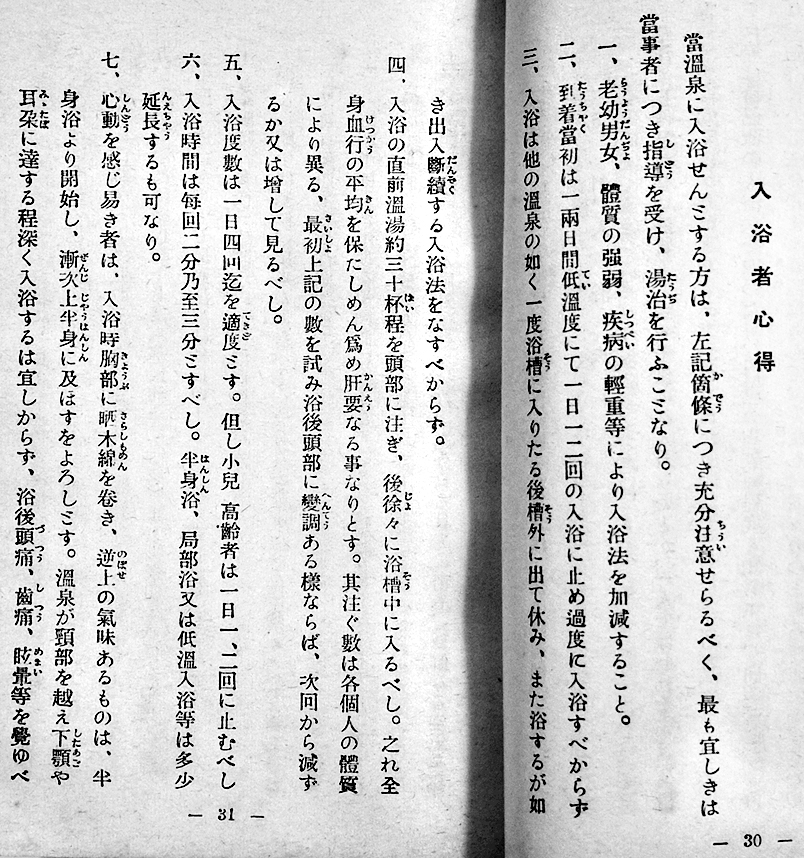 入浴者心得
當溫泉に入浴せんとする方は、左記箇條につき充分注意せらるべく、最も宜しきは
當事者につき指導を受け、湯治を行ふことなり。
一、老幼男女、體質の强弱、疾病の輕重等により入浴法を加減すること。
二、到着當初は一兩日間低溫度にて一日一二回の入浴に止め過度に入浴すべからず
三、入浴は他の溫泉の如く一度浴槽に入りたる後槽外に出て休み、また浴するが如
— 30 —
き出入斷續する入浴法をなすべからず。
四、入浴の直前溫湯約三十杯程を頭部に注ぎ、後徐々に浴槽中に入るべし。之れ全
身血行の平均を保たしめん爲め肝要なる事なりとす。其注ぐ數は各個人の體質
により異る、最初上記の數を試み浴後頭部に變調ある樣ならば、次回から減ず
るか又は增して見るべし。
五、入浴度數は一日四回迄を適度とす。但し小兒 高齡者は一日一、二回に止むべし
六、入浴時間は每回二分乃至三分とすべし。半身浴、局部浴又は低溫入浴等は多少
延長するも可なり。
七、心動を感じ易き者は、入浴時胸部に晒木綿を卷き、逆上の氣味あるものは、半
身浴より開始し、漸次上半身に及ほすをよろしとす。溫泉が頸部を越え下顎や
耳朶に達する程深く入浴するは宜しからず、浴後頭痛、齒痛、眩暈等を覺ゆべ
— 31 —